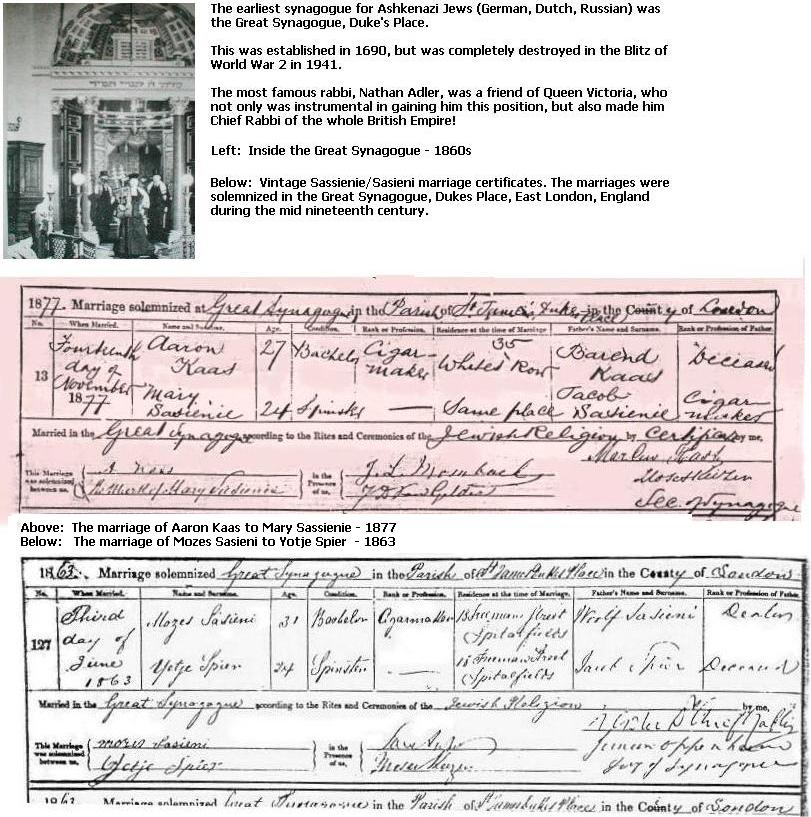 The earliest synagogue for Ashkenazi Jews (German, Dutch, Russian) was
the Great Synagogue, Duke's Place.
This was established in 1690, but was completely destroyed in the Blitz of
World War 2 in 1941.
The most famous rabbi, Nathan Adler, was a friend of Queen Victoria, who
not only was instrumental in gaining him this position, but also made him
Chief Rabbi of the whole British Empire!
Left: Inside the Great Synagogue - 1860s
Below: Vintage Sassienie/Sasieni marriage certificates. The marriages were
solemnized in the Great Synagogue, Dukes Place, East London, England
during the mid nineteenth century.
1877. Marriage solemnized at Great Synagogue in the Parish of St James's Dukes Place in the County of London
No. When Married. Name and Surname. Age. Condition. Rank or Profession. Residence at the time of Marriage Father's Name and Surname. Rank or Profession of Father.
13 Fourteenth day of November 1877 Aaron Kaas 27 Bachelor Cigar maker 35 Whites Row Barend Kaas Deceased
Mary Sasienie 24 Spinster — Same place Jacob Sasienie Cigar maker
Married in the Great Synagogue according to the Rites and Ceremonies of the Jewish Religion by Certificate by me,
This Marriage was solemnized between us, A Kaas
The Mark of Mary Sasienie
in the Presence of us, J. L. Mombach
Moses Keizer
Sec. of Synagogue
Above: The marriage of Aaron Kaas to Mary Sassienie - 1877
Below: The marriage of Mozes Sasieni to Yotje Spier - 1863
1863. Marriage solemnized Great Synagogue in the Parish of St James Dukes Place in the County of London
No. When Married. Name and Surname. Age. Condition. Rank or Profession. Residence at the time of Marriage. Father's Name and Surname. Rank or Profession of Father.
127 Third day of June 1863 Mozes Sasieni 31 Bachelor Cigarmaker Freeman Street Spitalfields Woolf Sasieni Dealer
Yotje Spier 24 Spinster — Freeman Street Spitalfields Jacob Spier Deceased
Married in the Great Synagogue according to the Rites and Ceremonies of the Jewish Religion by me,
This Marriage was solemnized between us, Mozes Sasieni
Yotje Spier
in the Presence of us, Moses Keizer
N Adler Dr Chief Rabbi
Simeon Oppenheim
Secy of Synagogue
1863. Marriage solemnized Great Synagogue in the Parish of St James Dukes Place in the County of London